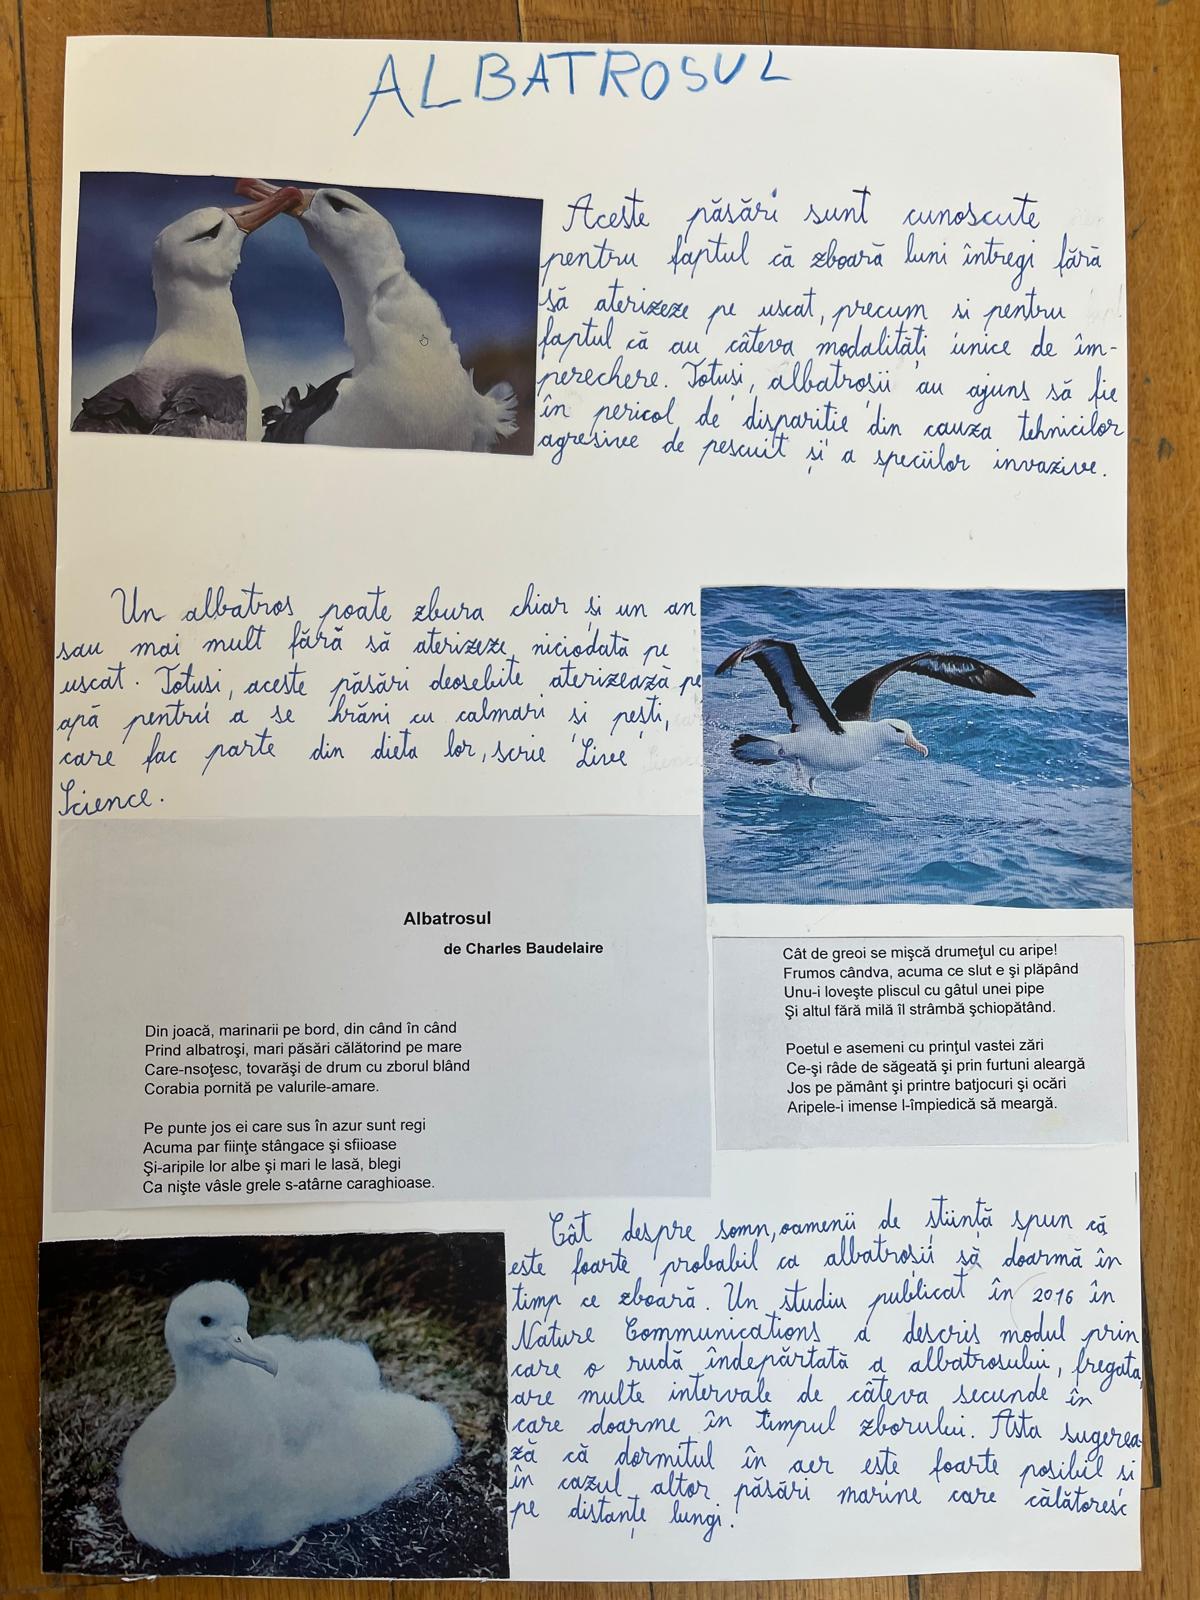 ALBATROSUL
Aceste păsări sunt cunoscute
pentru faptul că zboară luni întregi fără
să aterizeze pe uscat, precum si pentru
faptul că au câteva modalităţi unice de îm-
perechere. Totuşi, albatroşii au ajuns să fie
în pericol de dispariţie din cauza tehnicilor
agresive de pescuit şi a speciilor invazive.
Un albatros poate zbura chiar şi un an
sau mai mult fără să aterizeze niciodată pe
uscat. Totuşi, aceste păsări deosebite aterizează pe
apă pentru a se hrăni cu calmari si peşti,
care fac parte din dieta lor, scrie Live
Science.
Albatrosul
de Charles Baudelaire
Din joacă, marinarii pe bord, din când în când
Prind albatroşi, mari păsări călătorind pe mare
Care-nsoţesc, tovarăşi de drum cu zborul blând
Corabia pornită pe valurile-amare.
Pe punte jos ei care sus în azur sunt regi
Acuma par fiinţe stângace şi sfiioase
Şi-aripile lor albe şi mari le lasă, blegi
Ca nişte vâsle grele s-atârne caraghioase.
Cât de greoi se mişcă drumeţul cu aripe!
Frumos cândva, acuma ce slut e şi plăpând
Unu-i loveşte pliscul cu gâtul unei pipe
Şi altul fără milă îl strâmbă şchiopătând.
Poetul e asemeni cu prinţul vastei zări
Ce-şi râde de săgeată şi prin furtuni aleargă
Jos pe pământ şi printre batjocuri şi ocări
Aripele-i imense l-împiedică să meargă.
Cât despre somn, oamenii de ştiinţă spun că
este foarte probabil ca albatroşii să doarmă în
timp ce zboară. Un studiu publicat în 2016 în
Nature Communications a descris modul prin
care o rudă îndepărtată a albatrosului, fregata,
are multe intervale de câteva secunde în
care doarme în timpul zborului. Asta sugerea-
ză că dormitul în aer este foarte posibil si
în cazul altor păsări marine care călătoresc
pe distanţe lungi.